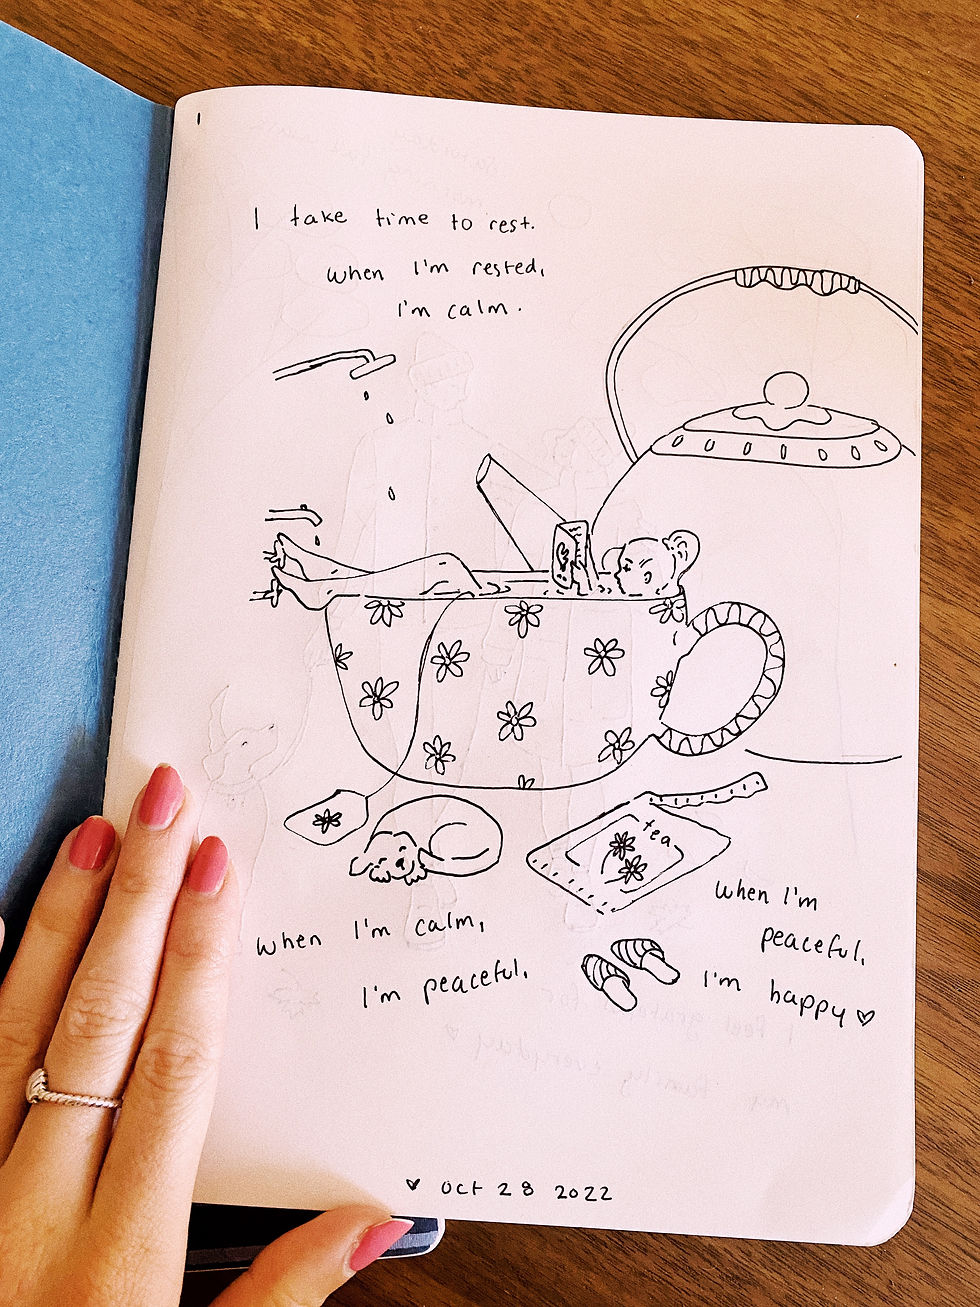 I take time to rest.
When I'm rested,
I'm calm.
tea
When I'm calm,
I'm peaceful.
When I'm
peaceful,
I'm happy ♡
♥ Oct 28 2022